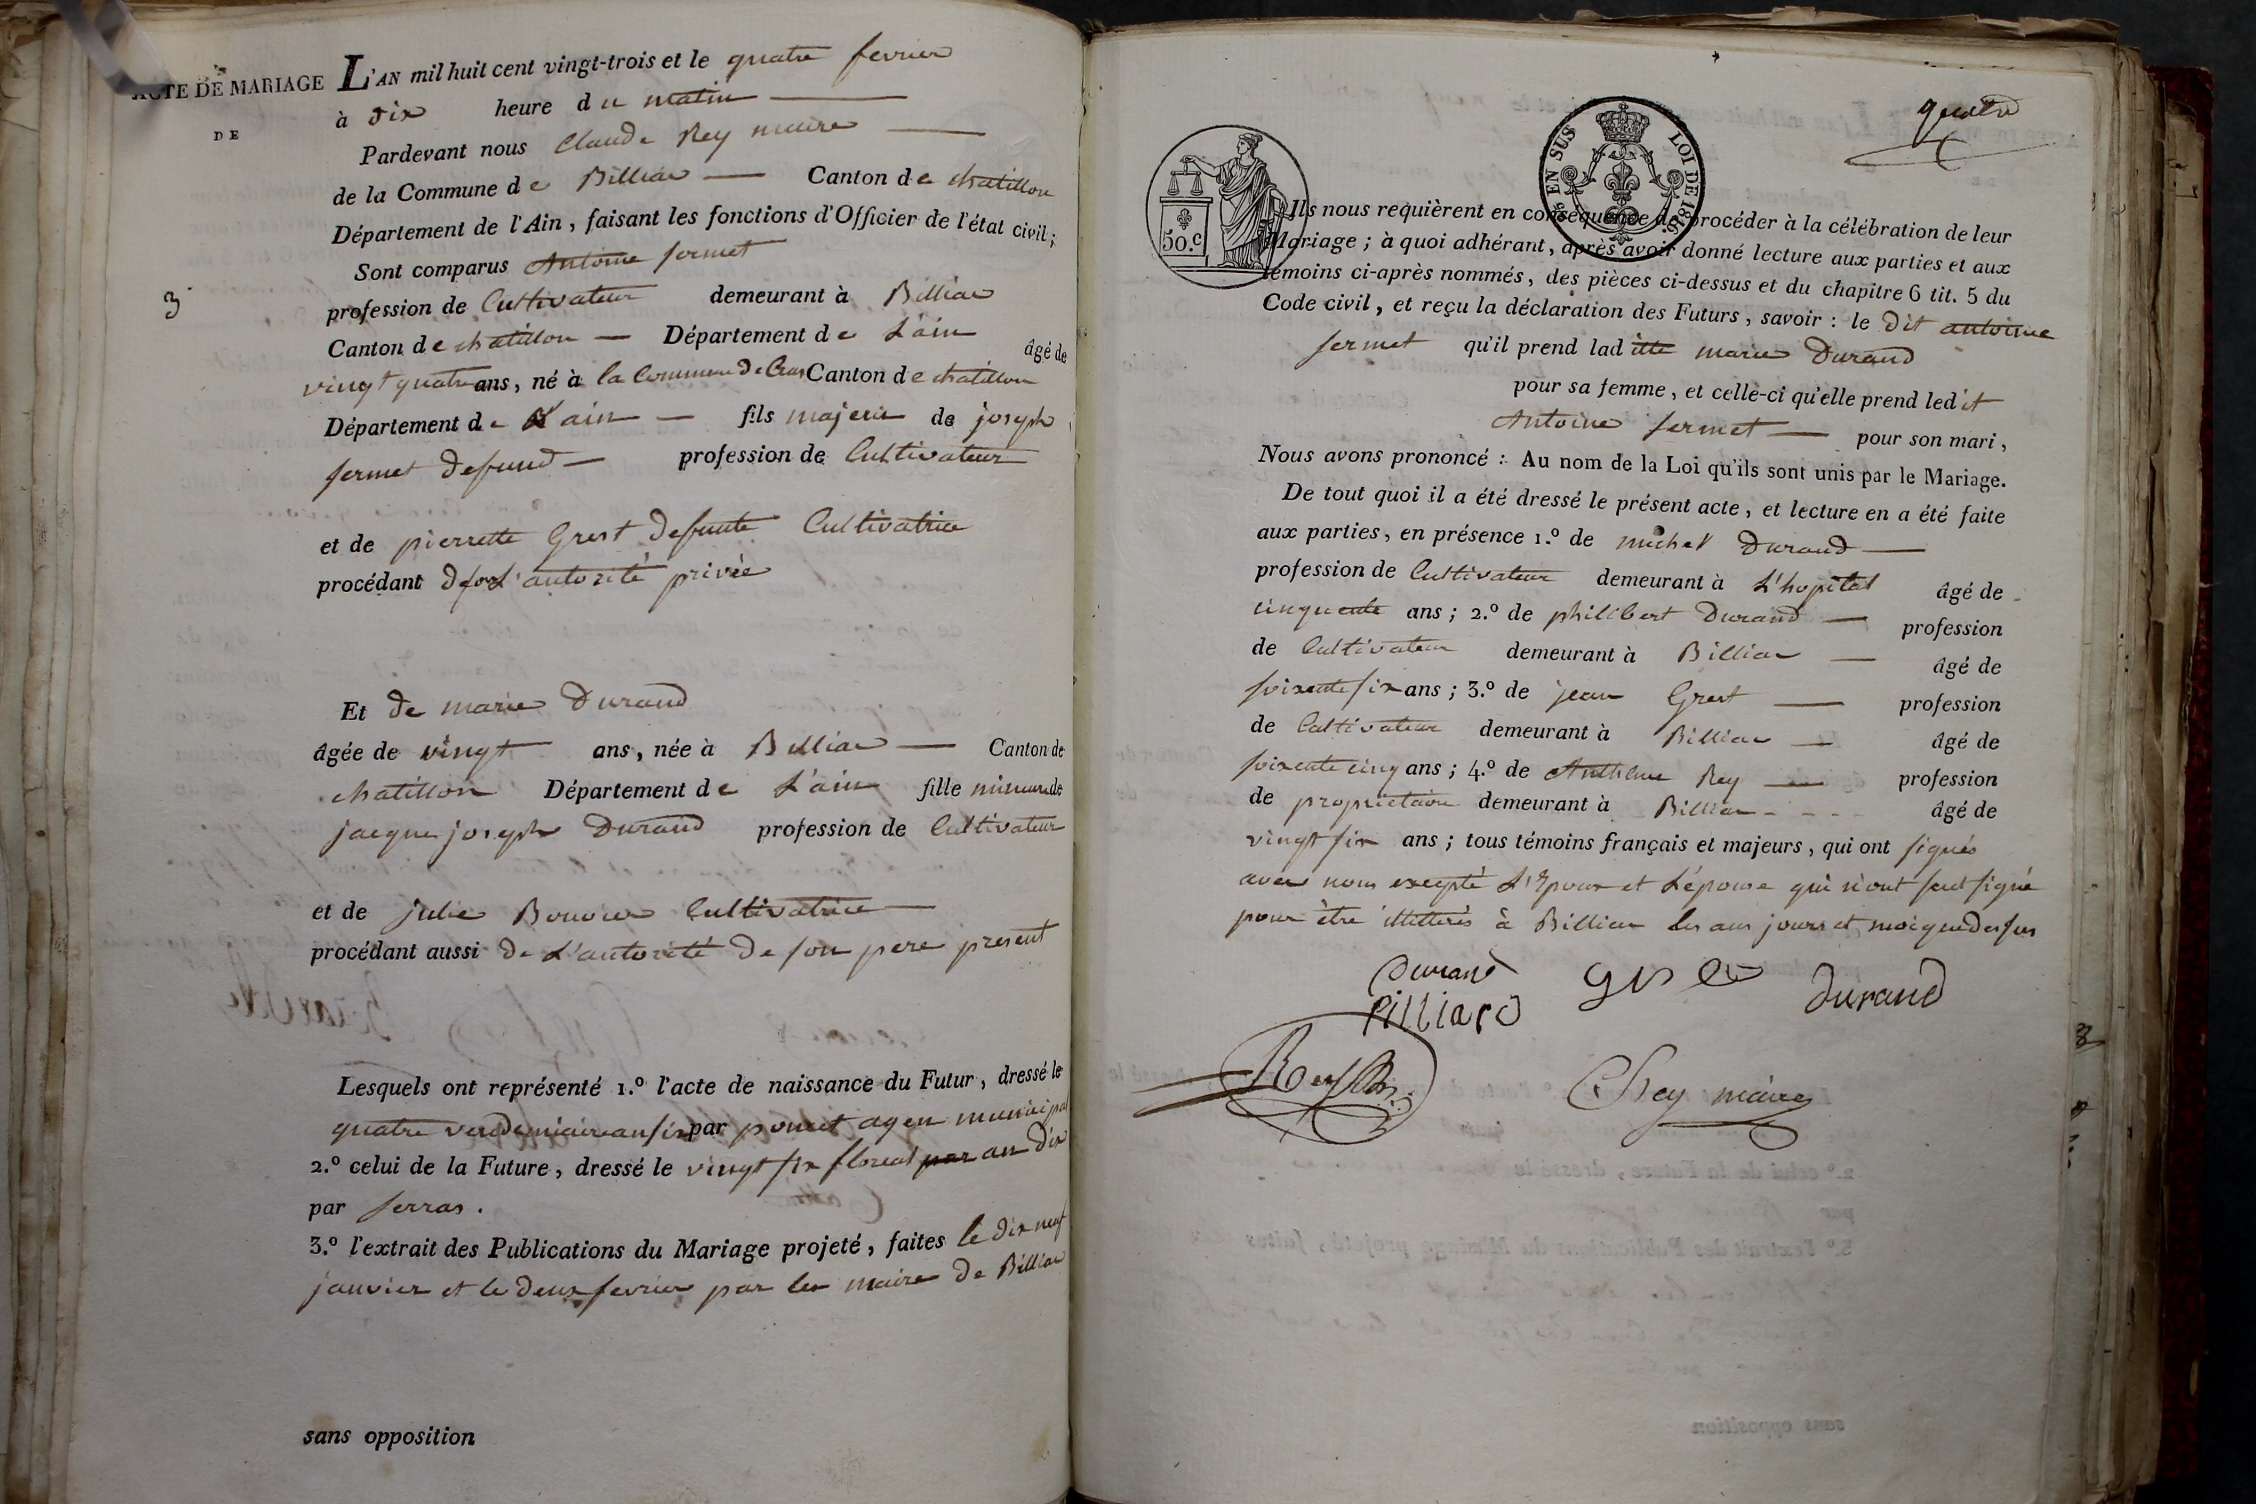 ACTE DE MARIAGE
DE
3
L'AN mil huit cent vingt-trois et le quatre fevrier
à dix heure du matin
Pardevant nous Claude Rey maire
de la Commune de Billiac Canton de chatillon
Département de l'Ain, faisant les fonctions d'Officier de l'état civil;
Sont comparus Antoine fermet
profession de Cultivateur demeurant à Billiac
Canton de chatillon Département de L'ain âgé de
vingt quatre ans, né à la Commune de Cras Canton de chatillon
Département de L'ain fils majeur de joseph
fermet defund profession de Cultivateur
et de pierrette Grest defunte Cultivatrice
procédant de L'autorité privée
Et de marie Durand
âgée de vingt ans, née à Billiac Canton de
chatillon Département de L'ain fille mineure de
jacque joseph Durand profession de Cultivateur
et de julie Cultivatrice
procédant aussi de L'autorité de son pere present
Lesquels ont représenté 1.º l'acte de naissance du Futur, dressé le
quatre vendemiaire an six par poncet agen municipal
2.º celui de la Future, dressé le vingt six floreal par an dix
par serras.
3.º l'extrait des Publications du Mariage projeté, faites le dix neuf
janvier et le deux fevrier par le maire de Billiac
sans opposition
quatre
50.C
EN SUS LOI DE 1816
Ils nous requièrent en conséquence de procéder à la célébration de leur
Mariage; à quoi adhérant, après avoir donné lecture aux parties et aux
témoins ci-après nommés, des pièces ci-dessus et du chapitre 6 tit. 5 du
Code civil, et reçu la déclaration des Futurs, savoir: le dit antoine
fermet qu'il prend laditte marie Durand
pour sa femme, et celle-ci qu'elle prend ledit
Antoine fermet pour son mari,
Nous avons prononcé: Au nom de la Loi qu'ils sont unis par le Mariage.
De tout quoi il a été dressé le présent acte, et lecture en a été faite
aux parties, en présence 1.º de michel Durand
profession de Cultivateur demeurant à L'hopital âgé de
cinquente ans; 2.º de philibert Durand profession
de Cultivateur demeurant à Billiac âgé de
soixente six ans; 3.º de jean Grest profession
de Cultivateur demeurant à Billiac âgé de
soixente cinq ans; 4.º de Anthelme Rey profession
de proprietaire demeurant à Billiac âgé de
vingt six ans; tous témoins français et majeurs, qui ont signés
avec nous excepté L'Epoux et L'épouse qui n'ont seut signé
pour être illitterés à Billiac les ans jours et moi que dessus
Durand
Durand
Rey
C Rey maire